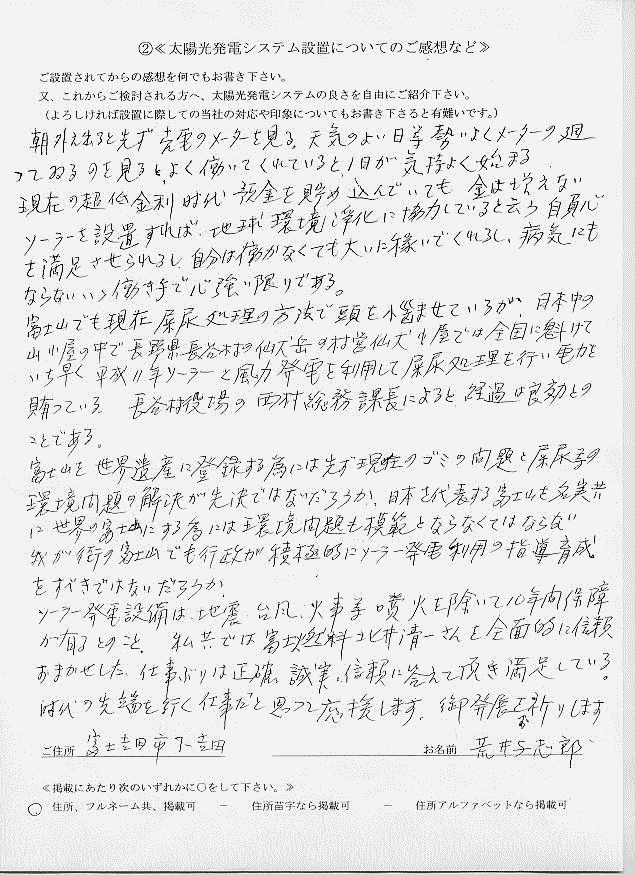 ②≪太陽光発電システム設置についてのご感想など≫
ご設置されてからの感想を何でもお書き下さい。
又、これからご検討される方へ、太陽光発電システムの良さを自由にご紹介下さい。
（よろしければ設置に際しての当社の対応や印象についてもお書き下さると有難いです。）
朝外え出ると先ず売電のメーターを見る。天気のよい日等勢いよくメーターの廻
っているのを見ると、よく働いてくれていると、1日が気持よく始まる
現在の超低金利時代 預金を貯め込んでいても金は増えない
ソーラーを設置すれば、地球環境浄化に協力していると云う自負心
を満足させられるし、自分は働かなくても大いに稼いでくれるし、病気にも
ならないいい働き手で心強い限りである。
富士山でも現在屎尿処理の方法で頭を悩ませているが、日本中の
山小屋の中で長野県長谷村の仙丈岳の村営仙丈小屋では全国に魁けて
いち早く平成11年ソーラーと風力発電を利用して屎尿処理を行い電力を
賄っている 長谷村役場の西村総務課長によると、経過は良効との
ことである。
富士山を世界遺産に登録する為には先ず現在のゴミの問題と屎尿等の
環境問題の解決が先決ではないだろうか、日本を代表する富士山を名実共
に世界の富士山にする為には環境問題も模範とならなくてはならない
我が街の富士山でも行政が積極的にソーラー発電利用の指導育成
をすべきではないだろうか
ソーラー発電設備は、地震、台風、火事等噴火を除いて10年間保障
が有るとのこと。 私共では富士燃料 北井清一さんを全面的に信頼
おまかせした、仕事ぶりは正確、誠実、信頼に答えて頂き満足している。
時代の先端を行く仕事だと思って応援します、御発展お祈りします
ご住所 富士吉田市下吉田 お名前 荒井与志郎
≪掲載にあたり次のいずれかに○をして下さい。≫
○ 住所、フルネーム共、掲載可 － 住所苗字なら掲載可 － 住所アルファベットなら掲載可